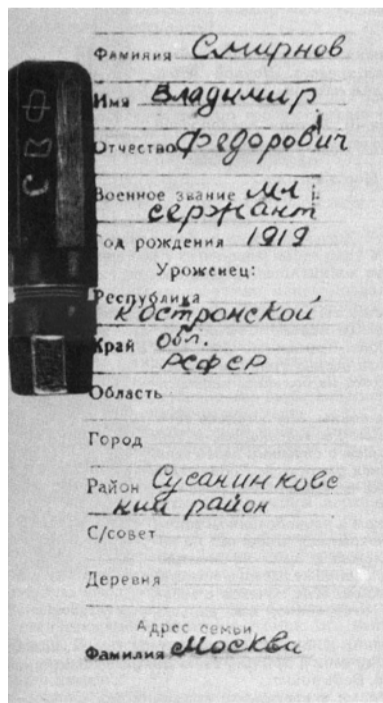 Фамилия Смирнов
Имя Владимир
Отчество Федорович
Военное звание мл
сержант
Год рождения 1919
Уроженец:
Республика
Костронской
Край обл.
РСФСР
Область
Город
Район Сусанинковс
кий район
С/совет
Деревня
Адрес семьи
Фамилия Москва
СВФ